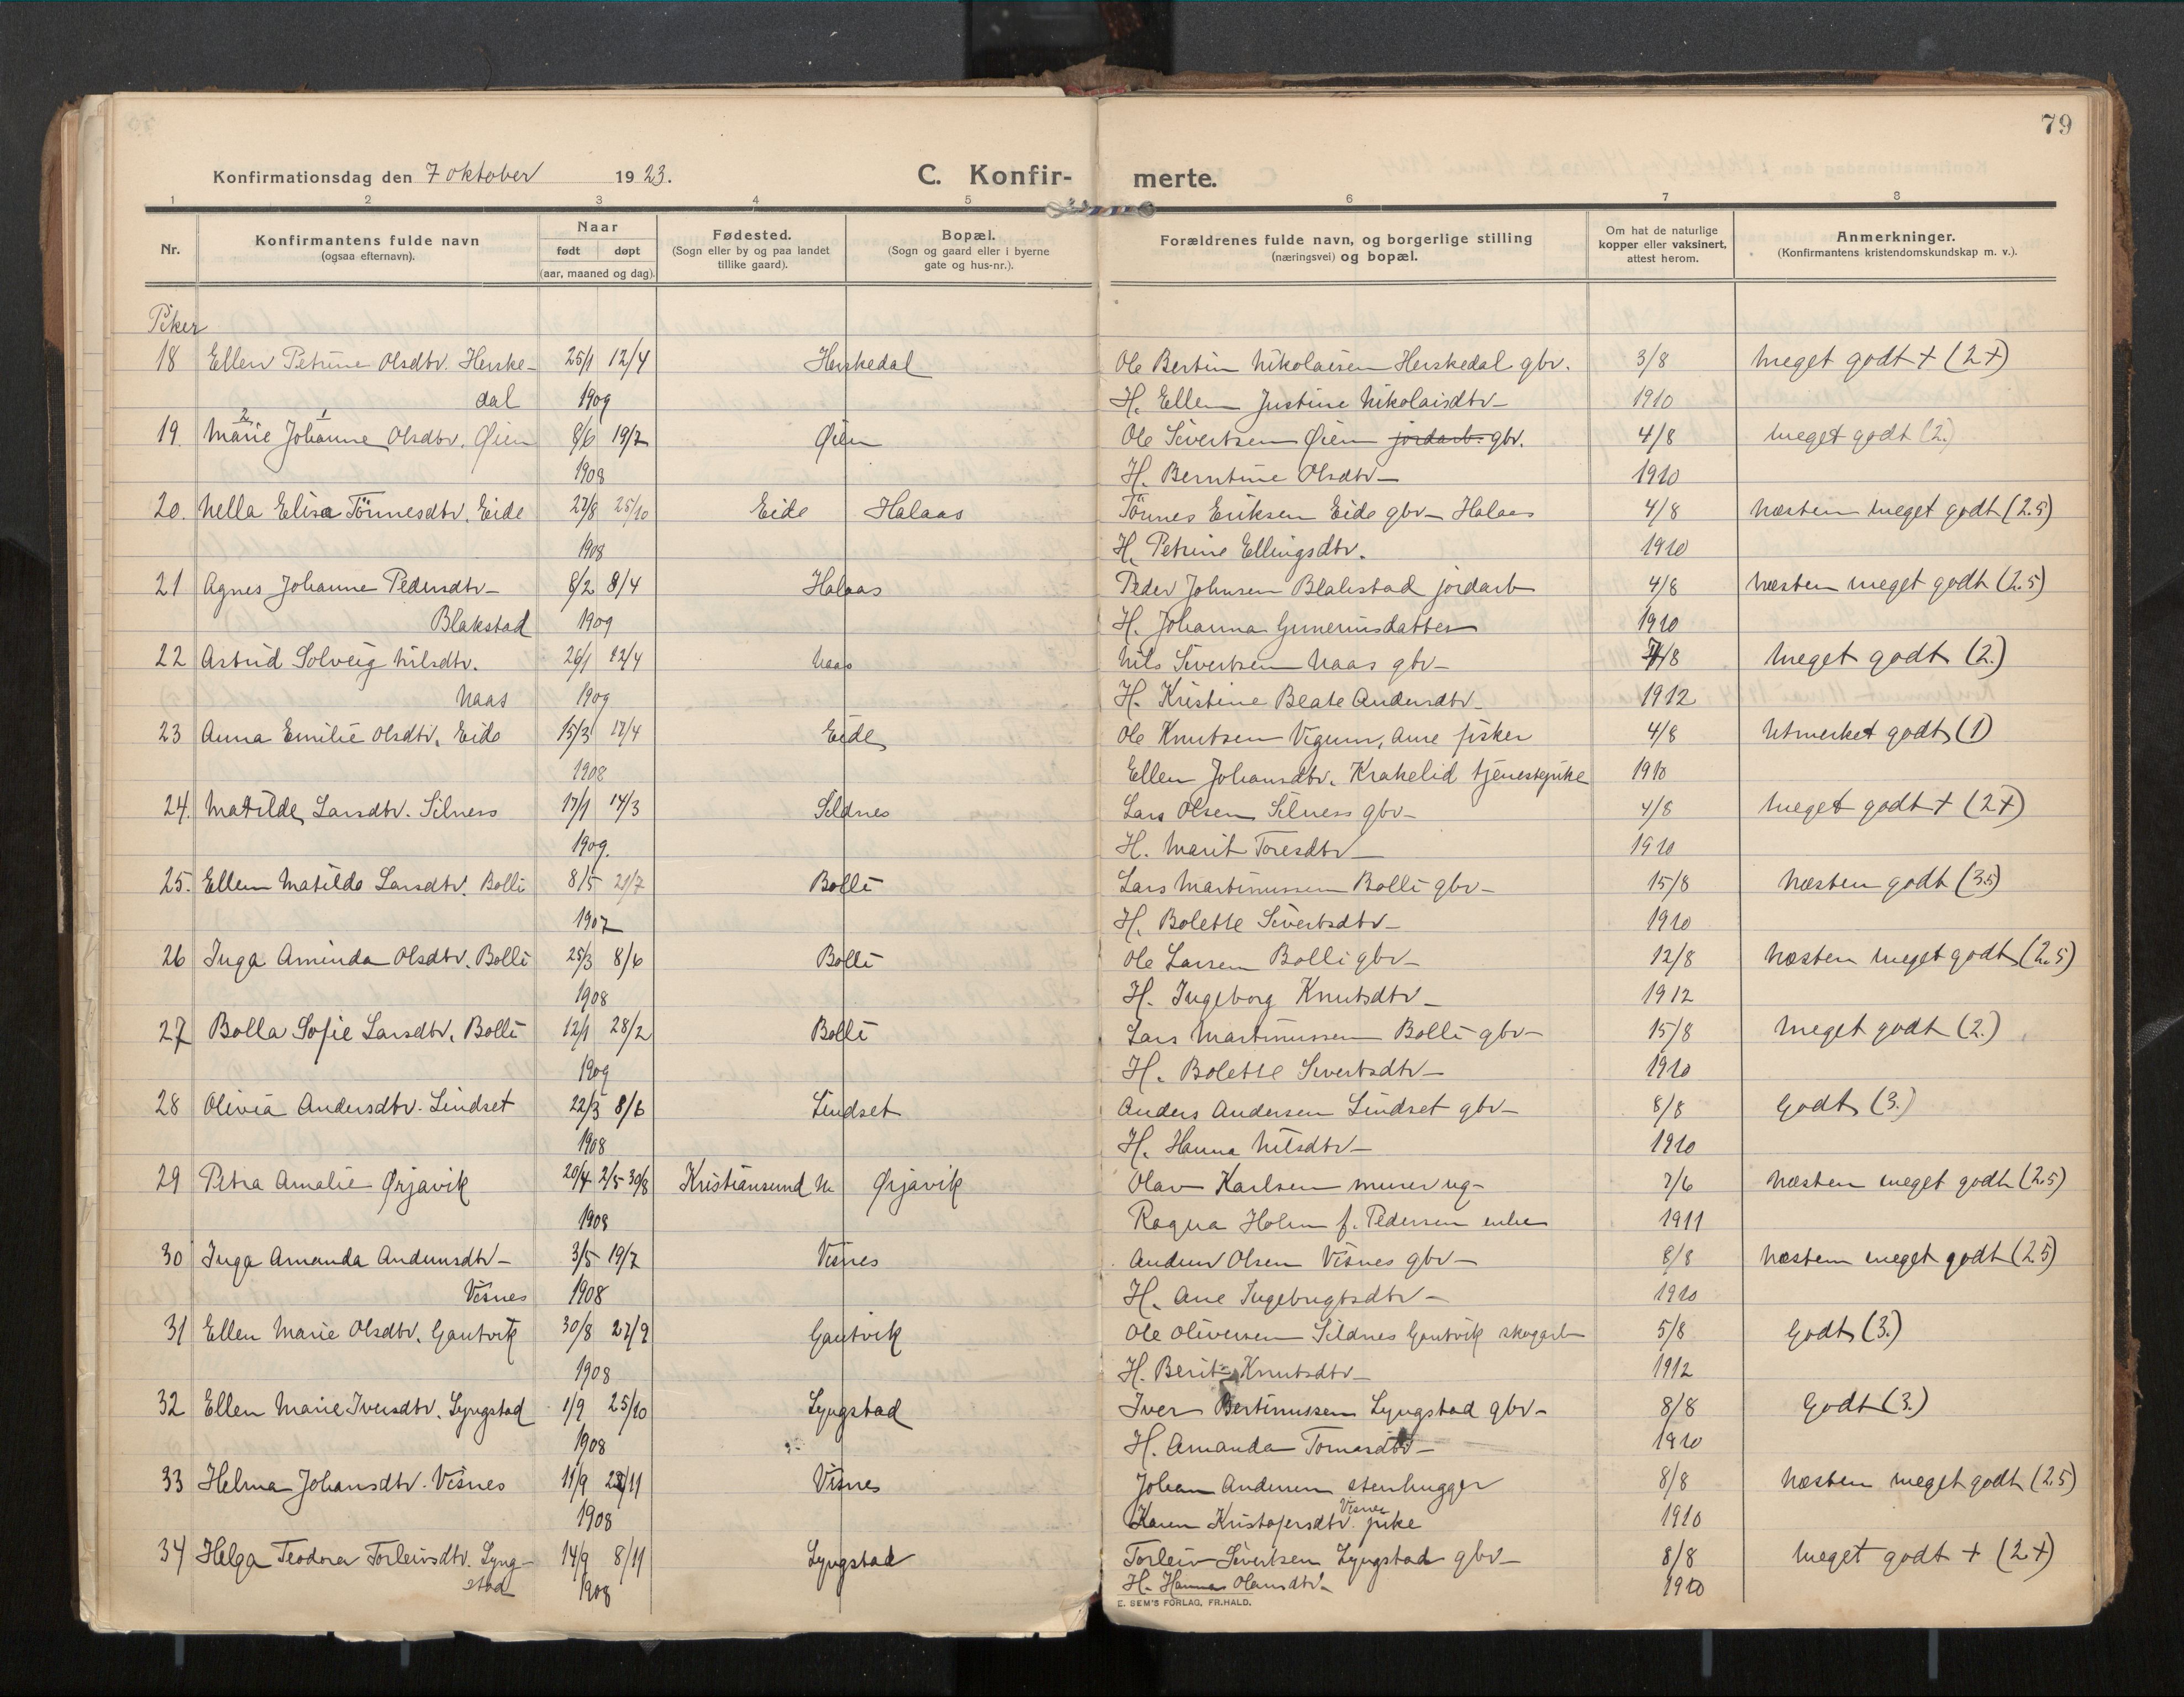 79
Konfirmationsdag den 7 oktober 1923. C. Konfir- merte.
1 2 3 4 5 6 7 8
Nr. Konfirmantens fulde navn (ogsaa efternavn). Naar født døpt (aar, maaned og dag). Fødested. (Sogn eller by og paa landet tillike gaard). Bopæl. (Sogn og gaard eller i byerne gate og hus-nr.). Forældrenes fulde navn, og borgerlige stilling (næringsvei) og bopæl. Om hat de naturlige kopper eller vaksinert, attest herom. Anmerkninger. (Konfirmantens kristendomskundskap m. v.).
Piker
18 Ellen Petrine Olsdtr. Herske- 25/1 12/4 Herskedal Ole Bertin Nikolaisen Herskedal gbr. 3/8 Meget godt + (2+)
dal 1909 H. Ellen Justine Nikolaisdtr- 1910
2 1
19. Marie Johanne Olsdtr. Øien 8/6 19/7 Øien Ole Sivertsen Øien jordarb. gbr. 4/8 Meget godt (2.)
1908 H. Berntine Olsdtr- 1910
20. Nella Elisa Tönnesdtr. Eide 27/8 25/10 Eide Halaas Tönnes Eriksen Eide gbr- Halaas 4/8 Næsten meget godt (2.5)
1908 H. Petrine Ellingsdtr. 1910
21 Agnes Johanne Pedersdtr- 8/2 8/4 Halaas Peder Johnsen Blakstad jordarb 4/8 Næsten meget godt (2.5)
Blakstad 1909 H. Johanna Gunneriusdatter 1910
22 Astrid Solveig Nilsdtr. 26/1 12/4 Naas Nils Sivertsen Naas gbr- 7/8 Meget godt (2.)
Naas 1909 H. Kristine Beate Andersdtr- 1912
23 Anna Emilie Olsdtr. Eide 15/3 17/4 Eide Ole Knutsen Vigum, Aure fisker 4/8 Utmerket godt (1)
1908 Ellen Johansdtr. Krakelid tjenestepike 1910
24. Matilde Larsdtr. Silness 17/1 14/3 Sildnes Lars Olsen Silness gbr- 4/8 Meget godt + (2+)
1909. H. Marit Toresdtr- 1910
25. Ellen Matilde Larsdtr. Bolli 8/5 21/7 Bolli Lars Martinussen Bolli gbr- 15/8 Næsten godt (3.5)
1907 H. Bolette Sivertsdtr- 1910
26 Inga Aminda Olsdtr. Bolli 25/3 8/6 Bolli Ole Larsen Bolli gbr- 12/8 Næsten meget godt (2.5)
1908 H. Ingeborg Knutsdtr- 1912
27 Bolla Sofie Larsdtr. Bolli 12/1 28/2 Bolli Lars Martinussen Bolli gbr- 15/8 Meget godt (2.)
1909 H. Bolette Sivertsdtr- 1910
28 Olivia Andersdtr. Lindset 22/3 8/6 Lindset Anders Andersen Lindset gbr- 8/8 Godt (3.)
1908 H. Hanna Nilsdtr- 1910
29 Petra Amalie Ørjavik 20/4 2/5 30/8 Kristiansund N Ørjavik Olav Karlsen murer ug- 7/6 Næsten meget godt (2.5)
1908 Ragna Holm f. Pedersen enke 1911
30 Inga Amanda Andersdtr- 3/5 19/7 Visnes Anders Olsen Visnes gbr- 8/8 Næsten meget godt (2.5)
Visnes 1908 H. Ane Ingebrigtsdtr- 1910
31 Ellen Marie Olsdtr. Gautvik 30/8 27/9 Gautvik Ole Oliversen Sildnes Gautvik skogarb 5/8 Godt (3.)
1908 H. Berit Knutsdtr- 1912
32 Ellen Marie Iversdtr. Lyngstad 1/9 25/10 Lyngstad Iver Bertinussen Lyngstad gbr- 8/8 Godt (3.)
1908 H. Amanda Tomasdtr- 1910
33 Helma Johansdtr. Visnes 11/9 /11 Visnes Johan Andersen stenhugger 8/8 Næsten meget godt (2.5)
1908 Karen Kristofersdtr. Visnes pike 1910
34 Helga Teodora Torleivsdtr. Lyng- 14/9 8/11 Lyngstad Torleiv Sivertsen Lyngstad gbr- 8/8 Meget godt + (2+)
stad 1908 H. Hanna Olausdtr- 1910
E. SEM'S FORLAG, FR.HALD.